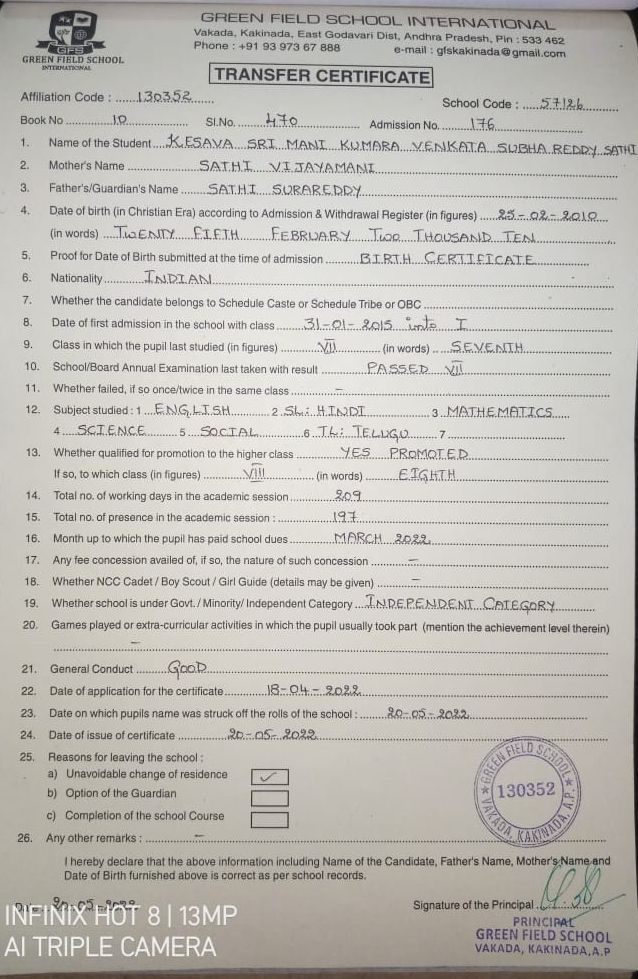 GFS
GREEN FIELD SCHOOL
INTERNATIONAL
GREEN FIELD SCHOOL INTERNATIONAL
Vakada, Kakinada, East Godavari Dist, Andhra Pradesh, Pin : 533 462
Phone : +91 93 973 67 888 e-mail : gfskakinada@gmail.com
TRANSFER CERTIFICATE
Affiliation Code : 130352 School Code : 57126
Book No 10 Sl.No. 470 Admission No. 176
1. Name of the Student KESAVA SRI MANI KUMARA VENKATA SUBHA REDDY SATHI
2. Mother's Name SATHI VIJAYAMANI
3. Father's/Guardian's Name SATHI SURAREDDY
4. Date of birth (in Christian Era) according to Admission & Withdrawal Register (in figures) 25-02-2010
(in words) TWENTY FIFTH FEBRUARY TWO THOUSAND TEN
5. Proof for Date of Birth submitted at the time of admission BIRTH CERTIFICATE
6. Nationality INDIAN
7. Whether the candidate belongs to Schedule Caste or Schedule Tribe or OBC
8. Date of first admission in the school with class 31-01-2015 into I
9. Class in which the pupil last studied (in figures) VII (in words) SEVENTH
10. School/Board Annual Examination last taken with result PASSED VII
11. Whether failed, if so once/twice in the same class –
12. Subject studied : 1 ENGLISH 2 SL: HINDI 3 MATHEMATICS
4 SCIENCE 5 SOCIAL 6 TL: TELUGU 7
13. Whether qualified for promotion to the higher class YES PROMOTED
If so, to which class (in figures) VIII (in words) EIGHTH
14. Total no. of working days in the academic session 209
15. Total no. of presence in the academic session : 197
16. Month up to which the pupil has paid school dues MARCH 2022
17. Any fee concession availed of, if so, the nature of such concession –
18. Whether NCC Cadet / Boy Scout / Girl Guide (details may be given) –
19. Whether school is under Govt. / Minority/ Independent Category INDEPENDENT CATEGORY
20. Games played or extra-curricular activities in which the pupil usually took part (mention the achievement level therein)
–
21. General Conduct GOOD
22. Date of application for the certificate 18-04-2022
23. Date on which pupils name was struck off the rolls of the school : 20-05-2022
24. Date of issue of certificate 20-05-2022
25. Reasons for leaving the school :
a) Unavoidable change of residence ✓
b) Option of the Guardian
c) Completion of the school Course
GREEN FIELD SCHOOL
130352
VAKADA, KAKINADA, A.P.
26. Any other remarks : –
I hereby declare that the above information including Name of the Candidate, Father's Name, Mother's Name and
Date of Birth furnished above is correct as per school records.
20-05-2022
Signature of the Principal
PRINCIPAL
GREEN FIELD SCHOOL
VAKADA, KAKINADA, A.P
INFINIX HOT 8 | 13MP
AI TRIPLE CAMERA